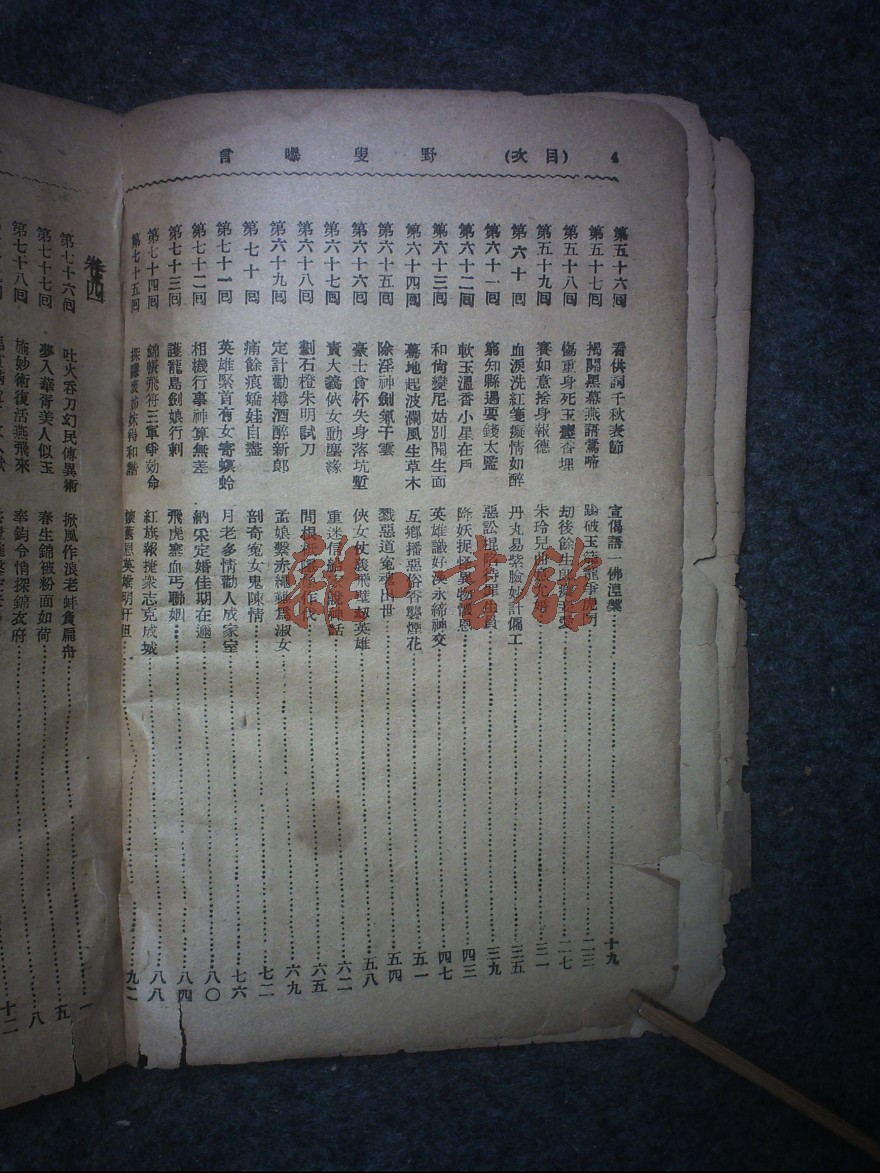 4 (目次) 野叟曝言
第五十六回 看供詞千秋表節 宣偈語一佛湼槃 十九
第五十七回 揭開黑幕燕語鶯啼 二三
第五十八回 傷重身死玉 香埋 劫後餘生郎 二七
第五十九回 賽如意捨身報德 朱玲兒 三一
第六十回 血淚洗紅箋癡情如醉 丹丸易紫臉妙計傷工 三五
第六十一回 窮知縣遇要錢太監 惡訟棍 三九
第六十二回 軟玉溫香小星在戶 降妖捉怪異物懷恩 四三
第六十三回 和尙變尼姑別開生面 英雄識好漢永締神交 四七
第六十四回 驀地起波瀾風生草木 互鄉播惡俗香襲煙花 五一
第六十五回 除淫神劍氣干雲 戮惡道冤魂出世 五四
第六十六回 豪士食杯失身落坑塹 俠女仗義飛壁刼英雄 五八
第六十七回 賣大義俠女動塵緣 重迷信 說神話 六二
第六十八回 劃石橙朱明試刀 問根 六五
第六十九回 定計勸樽酒醉新郎 孟娘繫赤繩 爲淑女 六九
第七十回 痛餘痕嬌娃自盡 剖奇寃女鬼陳情 七二
第七十一回 英雄緊首有女寄螟蛉 月老多情勸人成家室 七六
第七十二回 相機行事神算無差 納采定婚佳期在邇 八〇
第七十三回 護龍島劍娘行刺 飛虎寨血丐聯姻 八四
第七十四回 錦帳飛符三軍爭効命 紅旗報捷衆志克成城 八八
第七十五回 懷舊恩英雄明肝胆 九二
卷四
第七十六回 吐火吞刀幻民傳異術 掀風作浪老蚌貪扁舟 一
第七十七回 夢入華胥美人似玉 春生錦被粉面如荷 五
第七十八回 施妙術復活燕飛來 奉鈞令悄探錦衣府 八
十二
雜·書館